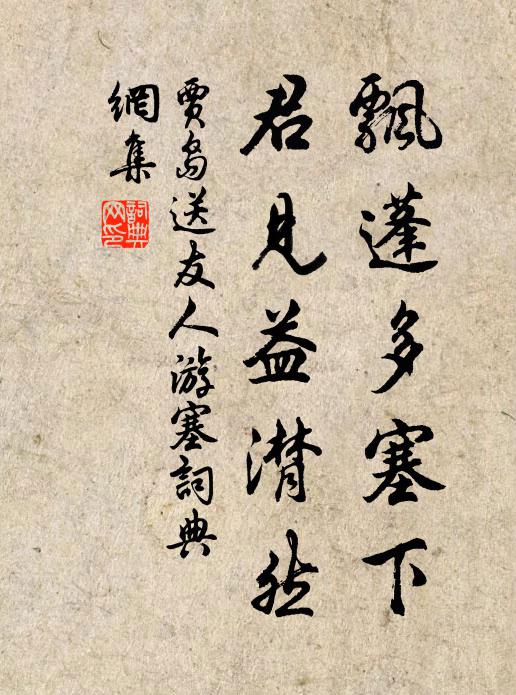 飄蓬多塞下
君見益潸然
賈島送友人游塞詞典
網集
詞典網印